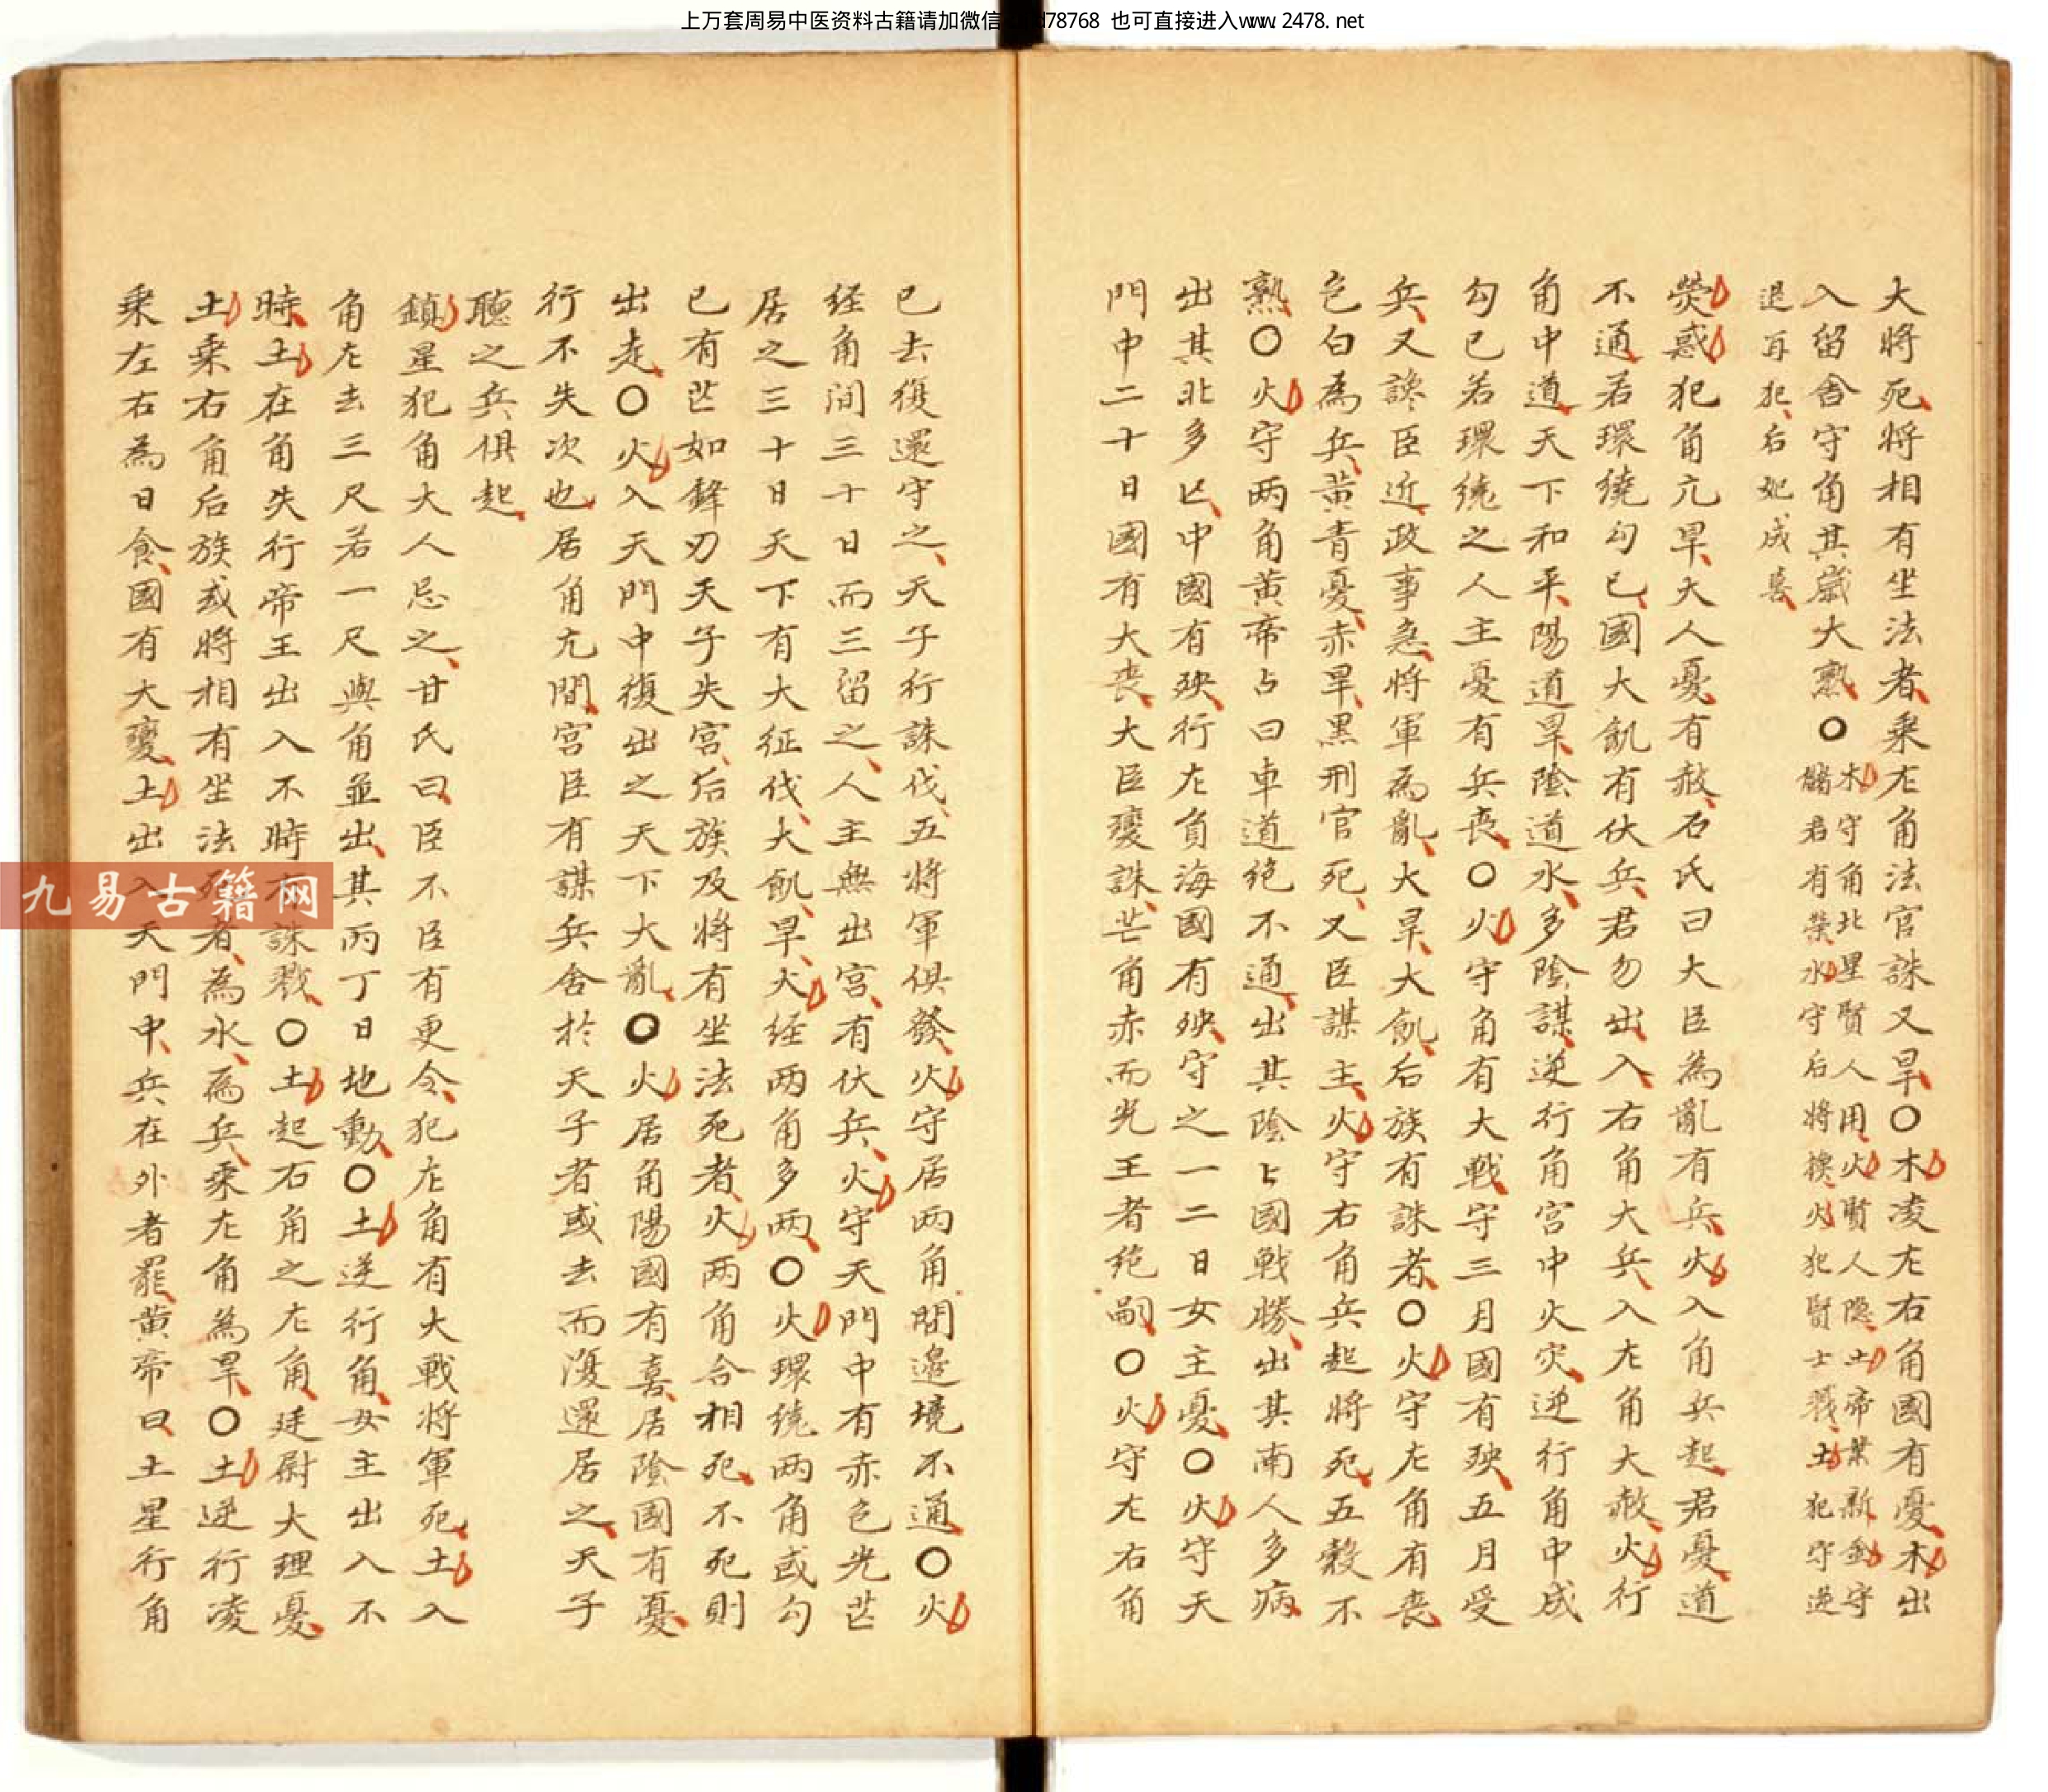 上万套周易中医资料古籍请加微信 d78768 也可直接进入www.2478.net
大将死将相有坐法者乘左角法官誅又旱〇木凌左右角國有憂木出
入留舍守角其歲大熟〇木守角北星賢人用火賢人隐土帝業新金守
儲君有榮水守后将揆火犯賢士戮土犯守逆
退再犯后妃成喜
熒惑犯角亢旱大人憂有赦石氏曰大臣為亂有兵火入角兵起君憂道
不通若環繞勾已國大飢有伏兵君勿出入右角大兵入左角大赦火行
角中道天下和平陽道旱陰道水多陰謀逆行角宮中火灾逆行角中成
勾已若環繞之人主憂有兵喪〇火守角有大戰守三月國有殃五月受
兵又讒臣近政事急将軍為亂大旱大飢后族有誅者〇火守左角有喪
色白為兵黄青憂赤旱黒刑官死又臣謀主火守右角兵起将死五穀不
熟〇火守两角黄帝占曰車道绝不通出其陰〻國戦勝出其南人多病
出其北多亡中國有殃行左負海國有殃守之一二日女主憂〇火守天
門中二十日國有大喪大臣變誅芒角赤而光王者绝嗣〇火守左右角
已去復還守之天子行誅伐五将軍俱發火守居两角間邉境不通〇火
经角间三十日而三留之人主無出宮有伏兵火守天門中有赤色光芒
居之三十日天下有大征伐大飢旱火经两角多两〇火環繞两角或勾
已有芒如鋒刃天子失宮后族及将有坐法死者火两角合相死不死則
出走〇火入天門中復出之天下大亂〇火居角陽國有喜居陰國有憂
行不失次也居角亢間宮臣有謀兵舍於天子者或去而復還居之天子
聽之兵俱起
鎮星犯角大人忌之甘氏曰臣不臣有更令犯左角有大戰将軍死土入
角左去三尺若一尺與角並出其丙丁日地動〇土逆行角女主出入不
時土在角失行帝王出入不時有誅戮〇土起右角之左角廷尉大理憂
土乘右角后族或将相有坐法死者為水為兵乘左角為旱〇土逆行凌
乘左右為日食國有大變土出入天門中兵在外者罷黄帝曰土星行角
九易古籍网